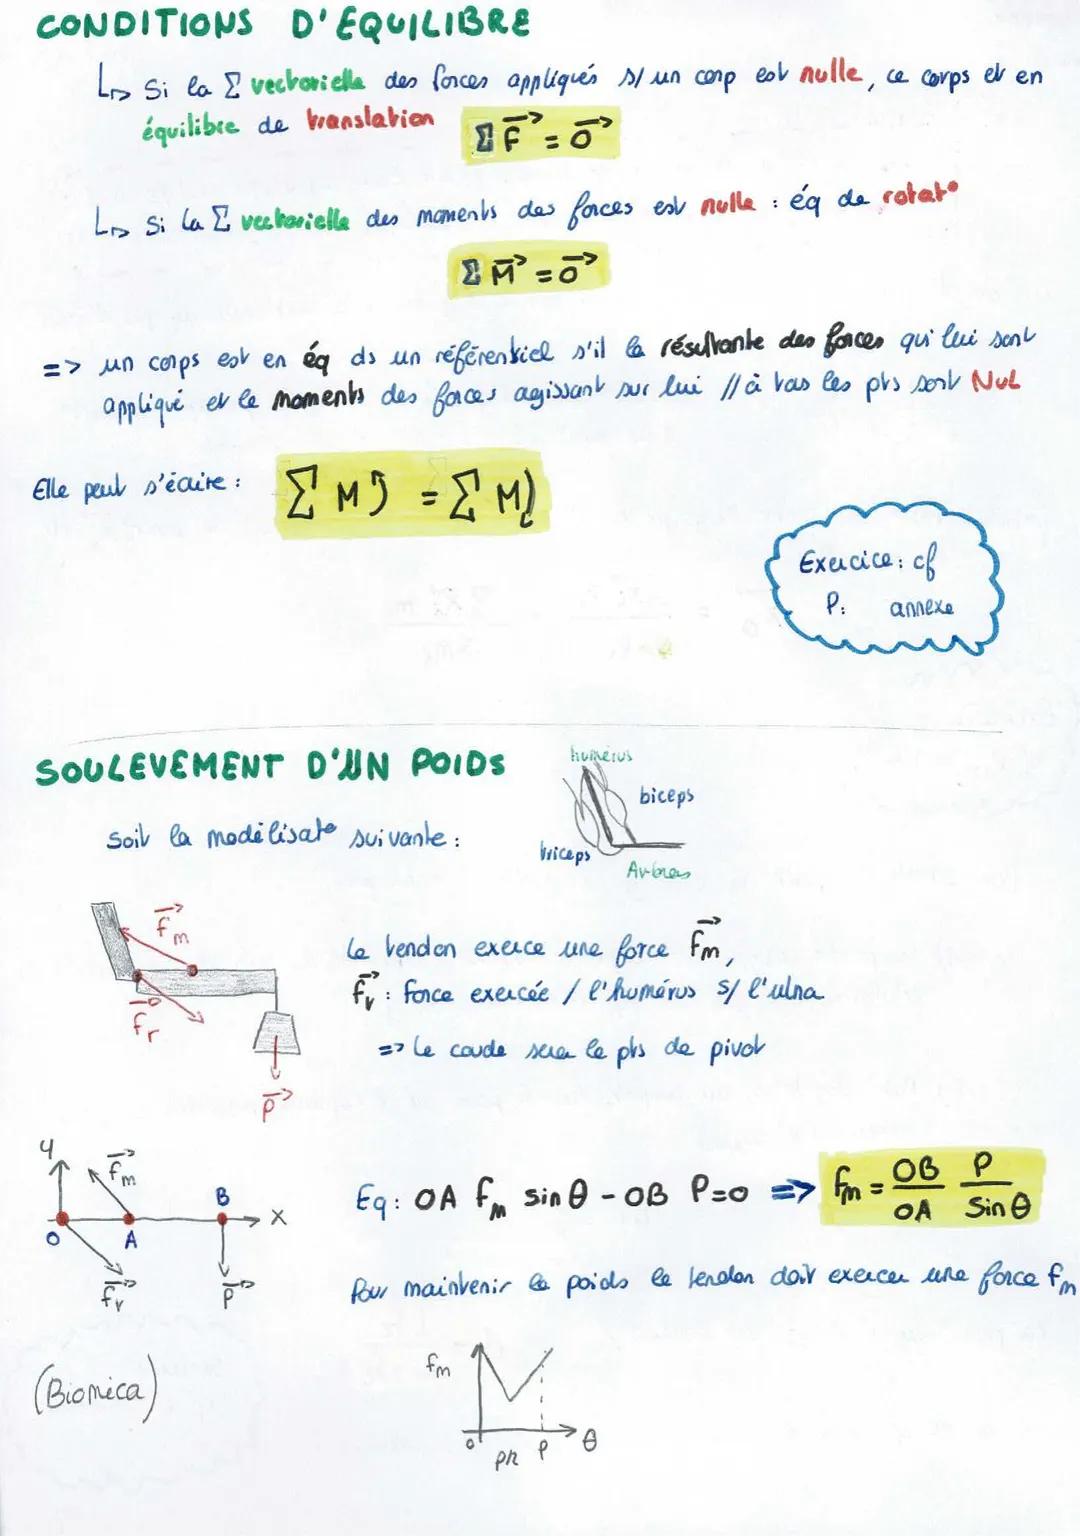 CONDITIONS D'EQUILIBRE
↳ Si la Σ vectorielle des forces appliqués s/ un corp est nulle, ce corps et en
équilibre de translation
ΣF⃗ = 0⃗
↳ Si la Σ vectorielle des moments des forces est nulle : éq de rotat°
ΣM⃗ = 0⃗
=> un corps est en éq ds un référentiel s'il la résultante des forces qui lui sont
appliqué et le moments des forces agissant sur lui // à tous les pts sont NUL
Elle peut s'écrire :
Σ M↺ = Σ M↻
Exercice : cf
P: annexe
SOULEVEMENT D'UN POIDS
humérus
biceps
triceps
Av-bras
Soit la modélisat° suivante :
f⃗m
f⃗r
P⃗
Le tendon exerce une force f⃗m,
f⃗r : force exercée / l'humérus s/ l'ulna
=> Le coude sera le pts de pivot
y
f⃗m
B
O A x
f⃗r P⃗
Eq : OA fm sin θ - OB P=0 => fm = OB/OA P/Sin θ
Pour maintenir le poids le tendon doit exercer une force fm
(Biomica)
fm
0 θ
PR P